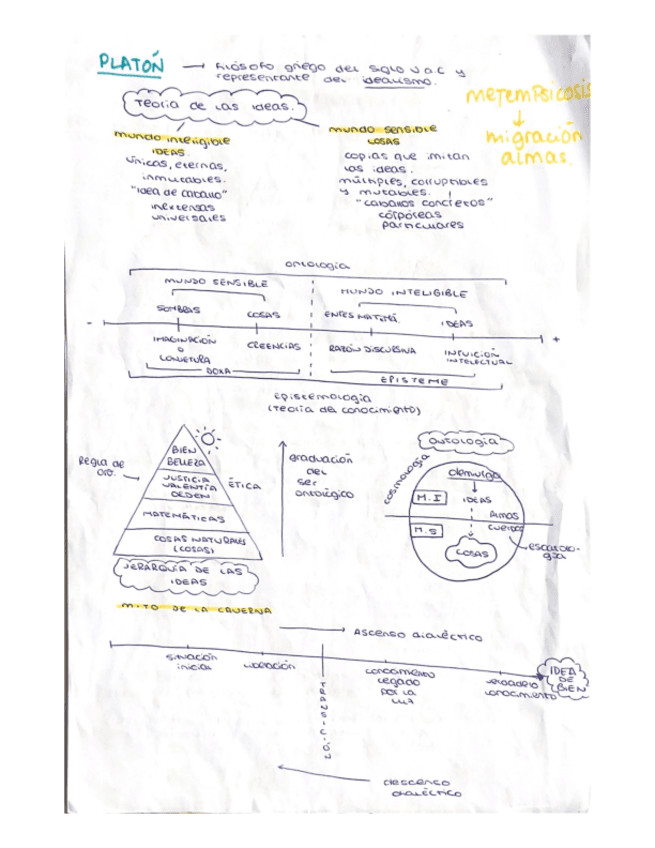 PLATÓN → filósofo griego del siglo V a.C y
representante del idealismo.
Teoría de las ideas.
metempsicosis
migración
almas.
mundo inteligible
IDEAS
Únicas, eternas,
inmutables.
"idea de caballo"
inextensas
universales
mundo sensible
COSAS
copias que imitan
las ideas.
múltiples, corruptibles
y mutables.
"caballos concretos"
corpóreas
particulares
ontología
MUNDO SENSIBLE
MUNDO INTELIGIBLE
SOMBRAS
COSAS
ENTES MATEMÁ.
IDEAS
- +
IMAGINACIÓN
O
CONJETURA
CREENCIAS
RAZÓN DISCURSIVA
INTUICIÓN
INTELECTUAL
DOXA
EPISTEME
Epistemología
(Teoría del conocimiento)
Regla de
oro.
BIEN
BELLEZA
JUSTICIA
VALENTÍA
ORDEN
ÉTICA
MATEMÁTICAS
COSAS NATURALES
(COSAS)
JERARQUÍA DE LAS
IDEAS
graduación
del
ser
ontológico
ontología
cosmología
demiurgo
M.I
IDEAS
ALMAS
M.S
CUERPOS
COSAS
escatolo-
gía
MITO DE LA CAVERNA
→ Ascenso dialéctico
situación
inicial
liberación
TRANSICIÓN
conocimiento
cegado
por la
luz
verdadero
conocimiento
IDEA
DE
BIEN
descenso
dialéctico